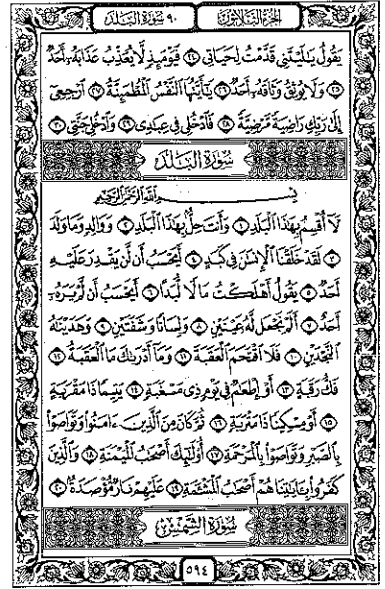 الجزء الثلاثون ٩٠ سورة البلد
يَقُولُ يَٰلَيْتَنِى قَدَّمْتُ لِحَيَاتِى ٢٤ فَيَوْمَئِذٍ لَّا يُعَذِّبُ عَذَابَهُۥٓ أَحَدٌ
٢٥ وَلَا يُوثِقُ وَثَاقَهُۥٓ أَحَدٌ ٢٦ يَٰٓأَيَّتُهَا ٱلنَّفْسُ ٱلْمُطْمَئِنَّةُ ٢٧ ٱرْجِعِىٓ
إِلَىٰ رَبِّكِ رَاضِيَةً مَّرْضِيَّةً ٢٨ فَٱدْخُلِى فِى عِبَٰدِى ٢٩ وَٱدْخُلِى جَنَّتِى ٣٠
سُورَةُ الْبَلَدِ
بِسْمِ ٱللَّهِ ٱلرَّحْمَٰنِ ٱلرَّحِيمِ
لَآ أُقْسِمُ بِهَٰذَا ٱلْبَلَدِ ١ وَأَنتَ حِلٌّۢ بِهَٰذَا ٱلْبَلَدِ ٢ وَوَالِدٍ وَمَا وَلَدَ
٣ لَقَدْ خَلَقْنَا ٱلْإِنسَٰنَ فِى كَبَدٍ ٤ أَيَحْسَبُ أَن لَّن يَقْدِرَ عَلَيْهِ
أَحَدٌ ٥ يَقُولُ أَهْلَكْتُ مَالًا لُّبَدًا ٦ أَيَحْسَبُ أَن لَّمْ يَرَهُۥٓ
أَحَدٌ ٧ أَلَمْ نَجْعَل لَّهُۥ عَيْنَيْنِ ٨ وَلِسَانًا وَشَفَتَيْنِ ٩ وَهَدَيْنَٰهُ
ٱلنَّجْدَيْنِ ١٠ فَلَا ٱقْتَحَمَ ٱلْعَقَبَةَ ١١ وَمَآ أَدْرَىٰكَ مَا ٱلْعَقَبَةُ ١٢
فَكُّ رَقَبَةٍ ١٣ أَوْ إِطْعَٰمٌ فِى يَوْمٍ ذِى مَسْغَبَةٍ ١٤ يَتِيمًا ذَا مَقْرَبَةٍ
١٥ أَوْ مِسْكِينًا ذَا مَتْرَبَةٍ ١٦ ثُمَّ كَانَ مِنَ ٱلَّذِينَ ءَامَنُوا۟ وَتَوَاصَوْا۟
بِٱلصَّبْرِ وَتَوَاصَوْا۟ بِٱلْمَرْحَمَةِ ١٧ أُو۟لَٰٓئِكَ أَصْحَٰبُ ٱلْمَيْمَنَةِ ١٨ وَٱلَّذِينَ
كَفَرُوا۟ بِـَٔايَٰتِنَا هُمْ أَصْحَٰبُ ٱلْمَشْـَٔمَةِ ١٩ عَلَيْهِمْ نَارٌ مُّؤْصَدَةٌۢ ٢٠
سُورَةُ الشَّمْسِ
٥٩٤